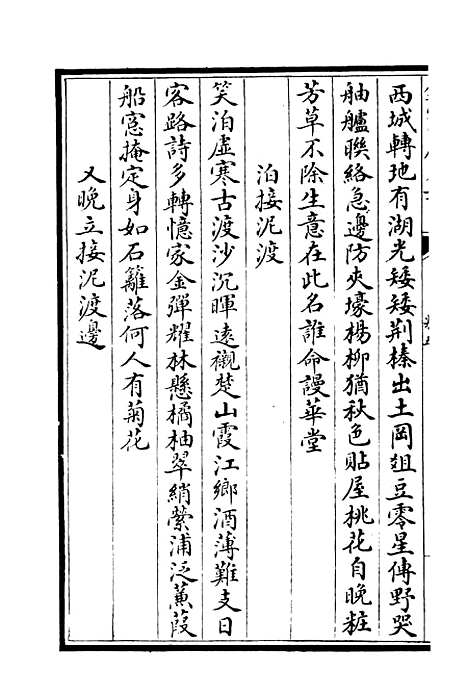 西城轉虵有湖光矮矮荆榛出土岡俎豆零星傳野哭
舳艫聨絡急邊防夾壕楊柳猶秋色貼屋桃花自晚粧
芳草不除生意在此名誰命謾華堂
泊接泥渡
笑泊虚寒古渡沙沉暉遠襯楚山霞江鄉酒薄難支日
客路詩多轉憶家金彈耀林懸橘柚翠綃縈浦泛蒹葭
船窓掩定身如石籬落何人有菊花
又晚立接泥渡邊